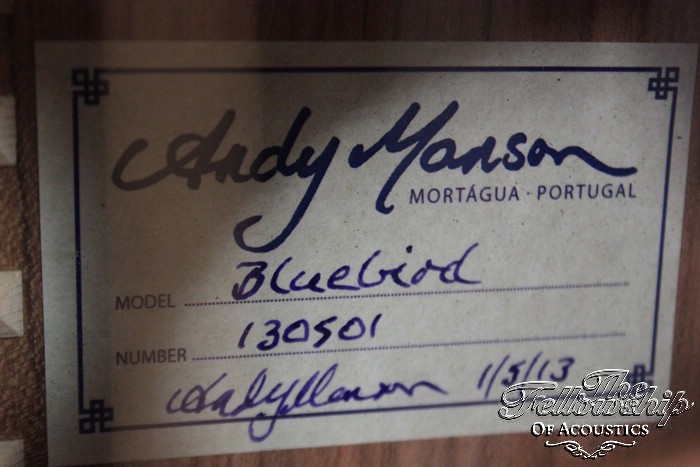 Andy Manson
MORTÁGUA · PORTUGAL
MODEL Bluebird
NUMBER 130501
Andy Manson 1/5/13
The
Fellowship
OF ACOUSTICS